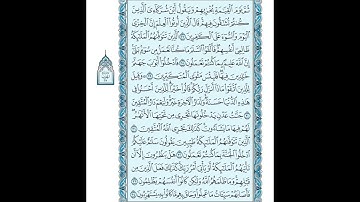 ثُمَّ يَوْمَ ٱلْقِيَٰمَةِ يُخْزِيهِمْ وَيَقُولُ أَيْنَ شُرَكَآءِىَ ٱلَّذِينَ
كُنتُمْ تُشَٰٓقُّونَ فِيهِمْ قَالَ ٱلَّذِينَ أُوتُوا۟ ٱلْعِلْمَ إِنَّ ٱلْخِزْىَ
ٱلْيَوْمَ وَٱلسُّوٓءَ عَلَى ٱلْكَٰفِرِينَ ٢٧ ٱلَّذِينَ تَتَوَفَّىٰهُمُ ٱلْمَلَٰٓئِكَةُ
ظَالِمِىٓ أَنفُسِهِمْ فَأَلْقَوُا۟ ٱلسَّلَمَ مَا كُنَّا نَعْمَلُ مِن سُوٓءٍۭ بَلَىٰٓ
إِنَّ ٱللَّهَ عَلِيمٌۢ بِمَا كُنتُمْ تَعْمَلُونَ ٢٨ فَٱدْخُلُوٓا۟ أَبْوَٰبَ جَهَنَّمَ
خَٰلِدِينَ فِيهَا فَلَبِئْسَ مَثْوَى ٱلْمُتَكَبِّرِينَ ٢٩ وَقِيلَ
لِلَّذِينَ ٱتَّقَوْا۟ مَاذَآ أَنزَلَ رَبُّكُمْ قَالُوا۟ خَيْرًا لِّلَّذِينَ أَحْسَنُوا۟ فِى
هَٰذِهِ ٱلدُّنْيَا حَسَنَةٌ وَلَدَارُ ٱلْءَاخِرَةِ خَيْرٌ وَلَنِعْمَ دَارُ ٱلْمُتَّقِينَ
٣٠ جَنَّٰتُ عَدْنٍ يَدْخُلُونَهَا تَجْرِى مِن تَحْتِهَا ٱلْأَنْهَٰرُ
لَهُمْ فِيهَا مَا يَشَآءُونَ كَذَٰلِكَ يَجْزِى ٱللَّهُ ٱلْمُتَّقِينَ ٣١
ٱلَّذِينَ تَتَوَفَّىٰهُمُ ٱلْمَلَٰٓئِكَةُ طَيِّبِينَ يَقُولُونَ سَلَٰمٌ عَلَيْكُمُ
ٱدْخُلُوا۟ ٱلْجَنَّةَ بِمَا كُنتُمْ تَعْمَلُونَ ٣٢ هَلْ يَنظُرُونَ إِلَّآ أَن
تَأْتِيَهُمُ ٱلْمَلَٰٓئِكَةُ أَوْ يَأْتِىَ أَمْرُ رَبِّكَ كَذَٰلِكَ فَعَلَ ٱلَّذِينَ مِن
قَبْلِهِمْ وَمَا ظَلَمَهُمُ ٱللَّهُ وَلَٰكِن كَانُوٓا۟ أَنفُسَهُمْ يَظْلِمُونَ ٣٣
فَأَصَابَهُمْ سَيِّـَٔاتُ مَا عَمِلُوا۟ وَحَاقَ بِهِم مَّا كَانُوا۟ بِهِۦ يَسْتَهْزِءُونَ ٣٤